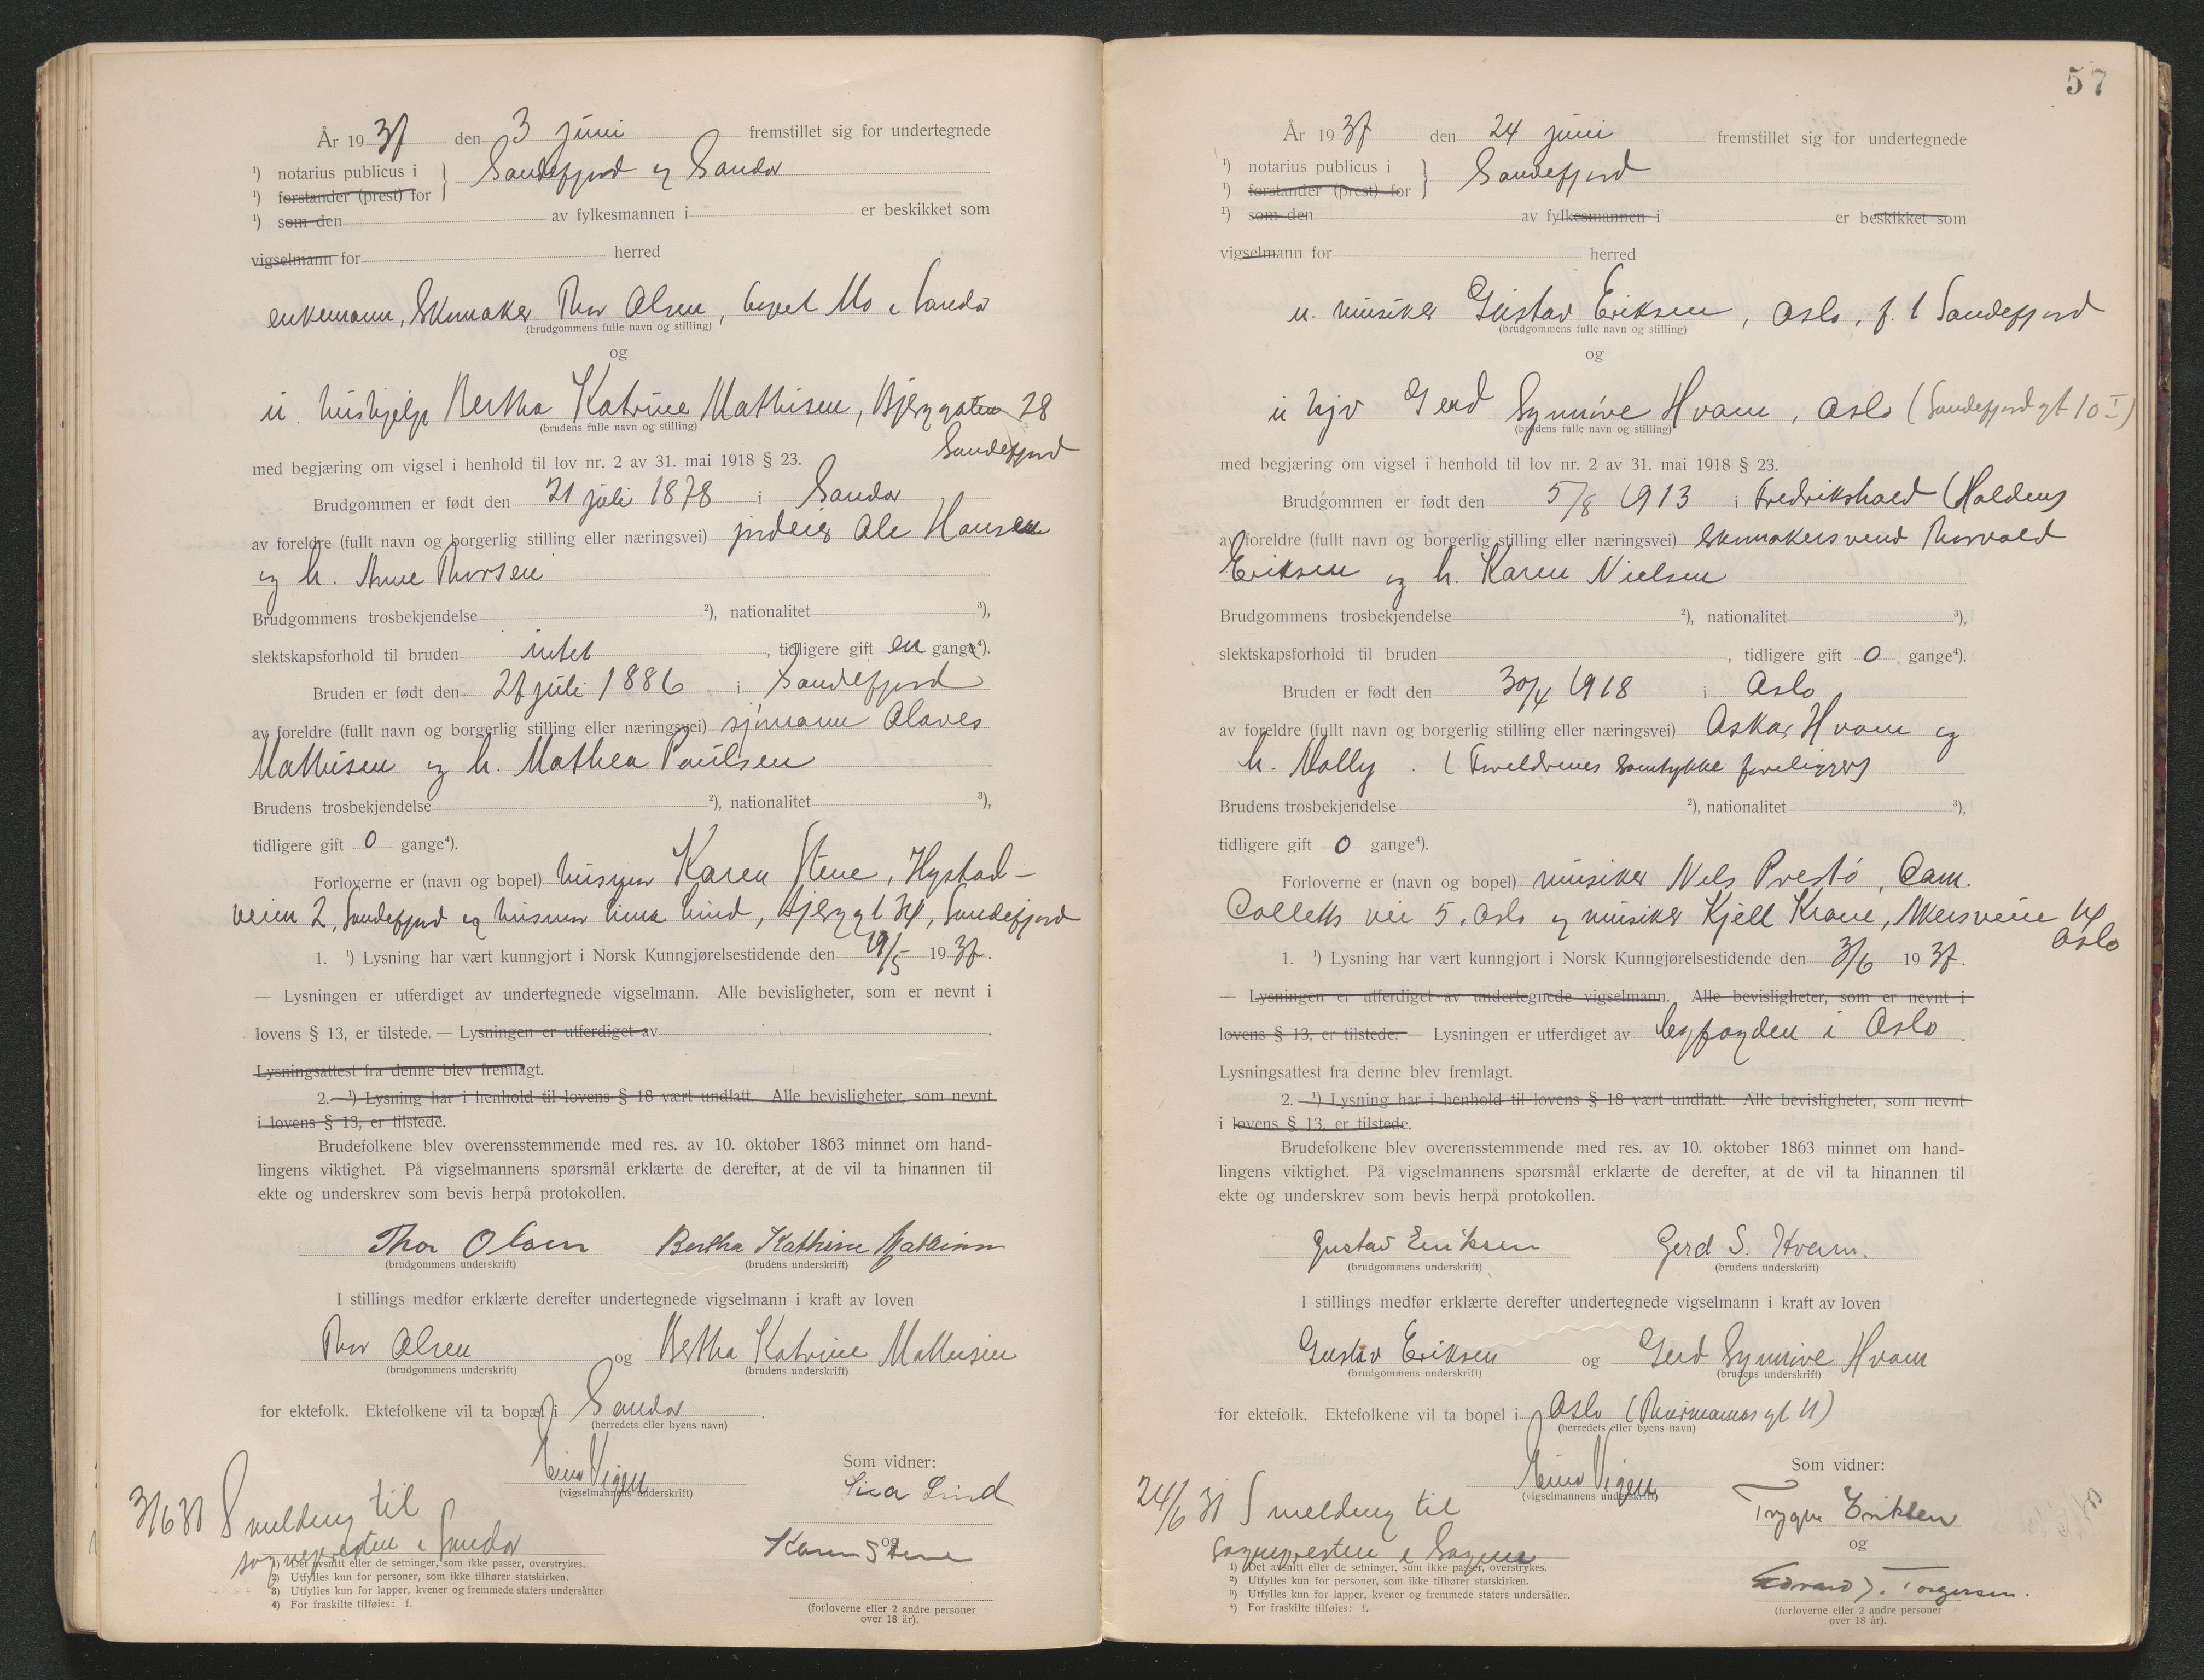 År 1937 den 3 juni fremstillet sig for undertegnede
¹) notarius publicus i } Sandefjord og Sandar
¹) forstander (prest) for
¹) som den av fylkesmannen i er beskikket som
vigselmann for herred
enkemann, Skomaker Thor Olsen, bopel Mo i Sandar
(brudgommens fulle navn og stilling)
og
u. hushjelp Bertha Katrine Mathisen, Bjerggaten 28
(brudens fulle navn og stilling)
Sandefjord
med begjæring om vigsel i henhold til lov nr. 2 av 31. mai 1918 § 23.
Brudgommen er født den 21 juli 1878 i Sandar
av foreldre (fullt navn og borgerlig stilling eller næringsvei) jordeier Ole Hansen
og h. Anne Thorsen
Brudgommens trosbekjendelse ²), nationalitet ³),
slektskapsforhold til bruden intet, tidligere gift en gange⁴).
Bruden er født den 27 juli 1886 i Sandefjord
av foreldre (fullt navn og borgerlig stilling eller næringsvei) sjömann Olaves
Mathisen og h. Mathea Paulsen
Brudens trosbekjendelse ²), nationalitet ³),
tidligere gift 0 gange⁴).
Forloverne er (navn og bopel) husmor Karen Stene, Hystad-
veien 2, Sandefjord og husmor Lina Lind, Bjerggt 34, Sandefjord
1. ¹) Lysning har vært kunngjort i Norsk Kunngjørelsestidende den 19/5 1937.
— Lysningen er utferdiget av undertegnede vigselmann. Alle bevisligheter, som er nevnt i
lovens § 13, er tilstede. — Lysningen er utferdiget av
Lysningsattest fra denne blev fremlagt.
2. ¹) Lysning har i henhold til lovens § 18 vært undlatt. Alle bevisligheter, som nevnt
i lovens § 13, er tilstede.
Brudefolkene blev overensstemmende med res. av 10. oktober 1863 minnet om hand-
lingens viktighet. På vigselmannens spørsmål erklærte de derefter, at de vil ta hinannen til
ekte og underskrev som bevis herpå protokollen.
Thor Olsen Bertha Kathrine Mathisen
(brudgommens underskrift) (brudens underskrift)
I stillings medfør erklærte derefter undertegnede vigselmann i kraft av loven
Thor Olsen og Bertha Katrine Mathisen
(brudgommens underskrift) (brudens underskrift)
for ektefolk. Ektefolkene vil ta bopæl i Sandar.
(herredets eller byens navn)
Einar Vigen
(vigselmannens underskrift)
Som vidner:
Lina Lind
og
Karen Stene
(forloverne eller 2 andre personer
over 18 år).
3/6 37 S melding til
sognepresten i Sandar
1) Det avsnitt eller de setninger, som ikke passer, overstrykes.
2) Utfylles kun for personer, som ikke tilhører statskirken.
3) Utfylles kun for lapper, kvener og fremmede staters undersåtter
4) For fraskilte tilføies: f.
57
År 1937 den 24 juni fremstillet sig for undertegnede
¹) notarius publicus i } Sandefjord
¹) forstander (prest) for
¹) som den av fylkesmannen i er beskikket som
vigselmann for herred
u. musiker Gustav Eriksen, Oslo, f. t Sandefjord
(brudgommens fulle navn og stilling)
og
u hjv Gerd Synnöve Hvam, Oslo (Sandefjordgt 10 I)
(brudens fulle navn og stilling)
med begjæring om vigsel i henhold til lov nr. 2 av 31. mai 1918 § 23.
Brudgommen er født den 5/8 1913 i Fredrikshald (Halden)
av foreldre (fullt navn og borgerlig stilling eller næringsvei) Skomakersvend Thorvald
Eriksen og h. Karen Nielsen
Brudgommens trosbekjendelse ²), nationalitet ³),
slektskapsforhold til bruden, tidligere gift 0 gange⁴).
Bruden er født den 30/4 1918 i Oslo
av foreldre (fullt navn og borgerlig stilling eller næringsvei) Oskar Hvam og
h. Molly. (Foreldrenes samtykke foreligger)
Brudens trosbekjendelse ²), nationalitet ³),
tidligere gift 0 gange⁴).
Forloverne er (navn og bopel) musiker Nils Prestö, Cam.
Colletts vei 5, Oslo og musiker Kjell Krane, Akersveien 14
Oslo
1. ¹) Lysning har vært kunngjort i Norsk Kunngjørelsestidende den 3/6 1937.
— Lysningen er utferdiget av undertegnede vigselmann. Alle bevisligheter, som er nevnt i
lovens § 13, er tilstede. — Lysningen er utferdiget av byfogden i Oslo.
Lysningsattest fra denne blev fremlagt.
2. ¹) Lysning har i henhold til lovens § 18 vært undlatt. Alle bevisligheter, som nevnt
i lovens § 13, er tilstede.
Brudefolkene blev overensstemmende med res. av 10. oktober 1863 minnet om hand-
lingens viktighet. På vigselmannens spørsmål erklærte de derefter, at de vil ta hinannen til
ekte og underskrev som bevis herpå protokollen.
Gustav Eriksen Gerd S. Hvam.
(brudgommens underskrift) (brudens underskrift)
I stillings medfør erklærte derefter undertegnede vigselmann i kraft av loven
Gustav Eriksen og Gerd Synnöve Hvam
(brudgommens underskrift) (brudens underskrift)
for ektefolk. Ektefolkene vil ta bopel i Oslo (Thurmannsgt 11)
(herredets eller byens navn)
Einar Vigen
(vigselmannens underskrift)
Som vidner:
Trygve Eriksen
og
Edvard J. Torgersen.
(forloverne eller 2 andre personer
over 18 år).
24/6 37 S melding til
sognepresten i Sagene
1) Det avsnitt eller de setninger, som ikke passer, overstrykes.
²) Utfylles kun for personer, som ikke tilhører statskirken.
³) Utfylles kun for lapper, kvener og fremmede staters undersåtter.
⁴) For fraskilte tilføies: f.